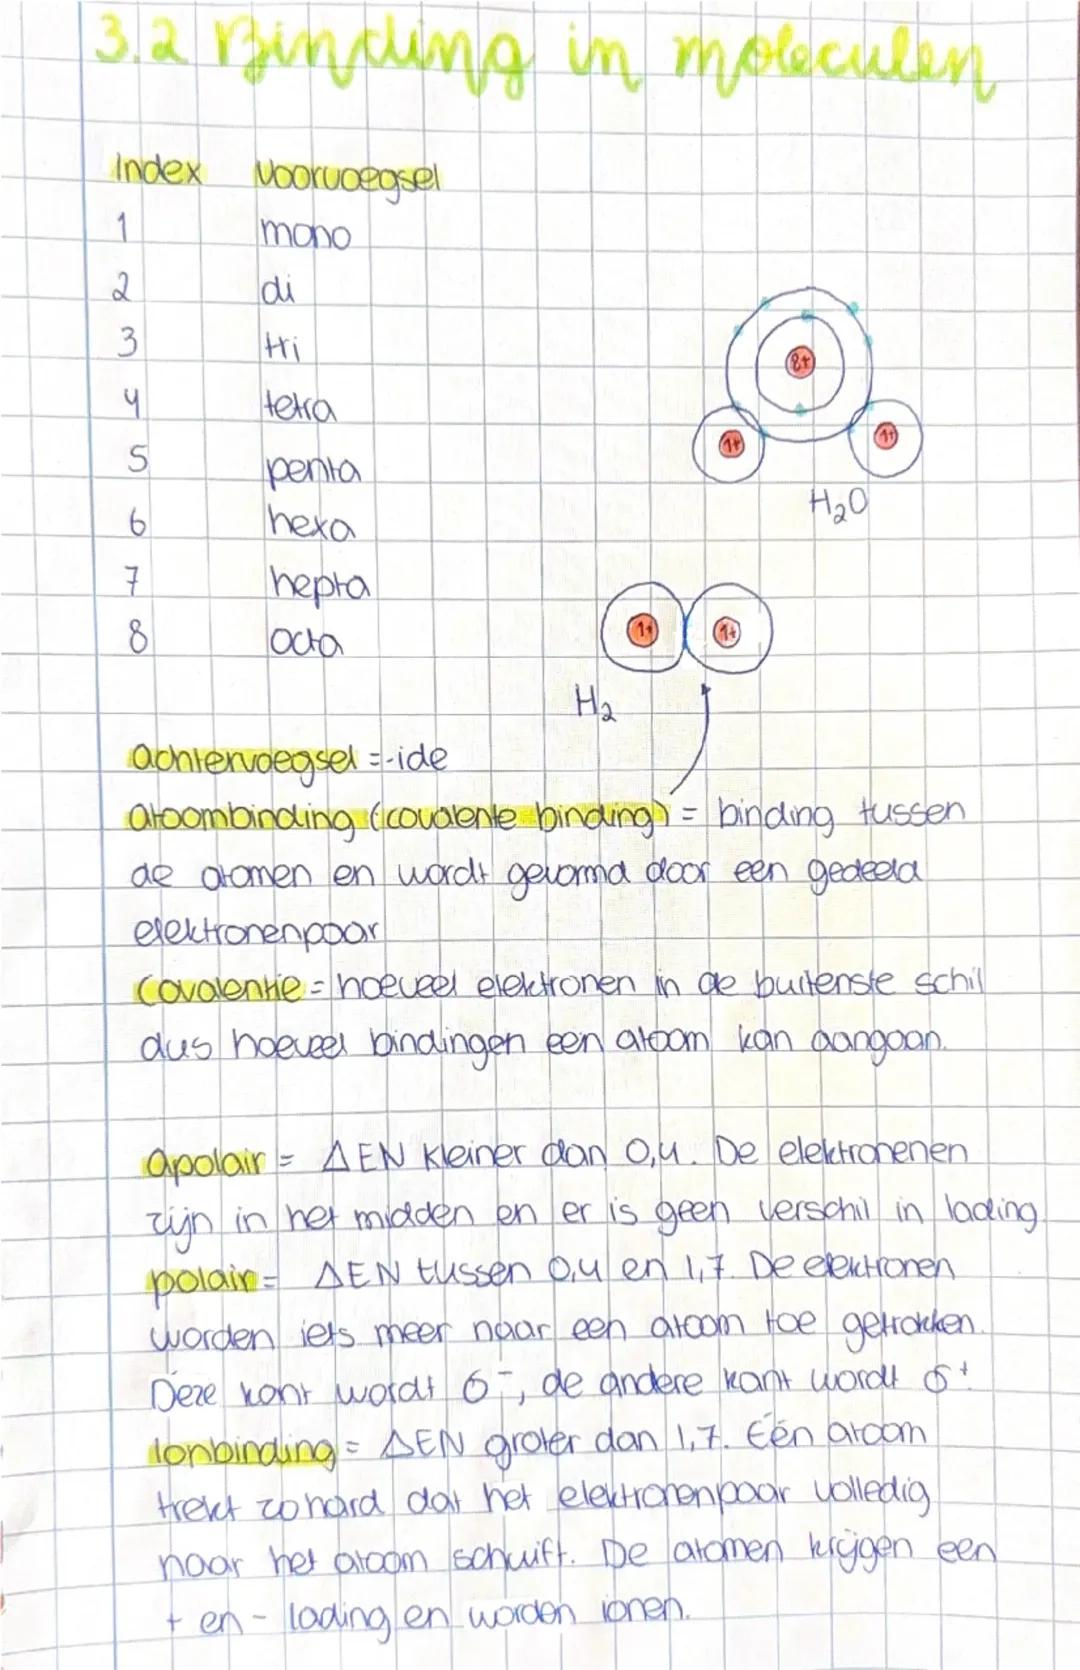 3.2 Binding in moleculen
Index voorvoegsel
1 mono
2 di
3 tri
4 tetra
5 penta
6 hexa
7 hepta
8 octa
8+
1+ 1+
H₂O
1+ 1+
H₂
achtervoegsel = -ide
atoombinding (covalente binding) = binding tussen
de atomen en wordt gevormd door een gedeeld
elektronenpaar
Covalentie = hoeveel elektronen in de buitenste schil
dus hoeveel bindingen een atoom kan aangaan.
apolair = ΔEN kleiner dan 0,4. De elektronenen
zijn in het midden en er is geen verschil in lading
polair = ΔEN tussen 0,4 en 1,7. De elektronen
worden iets meer naar een atoom toe getrokken.
Deze kant wordt δ⁻, de andere kant wordt δ⁺.
Ionbinding = ΔEN groter dan 1,7. Eén atoom
trekt zo hard dat het elektronenpaar volledig
naar het atoom schuift. De atomen krijgen een
+ en - lading en worden ionen.